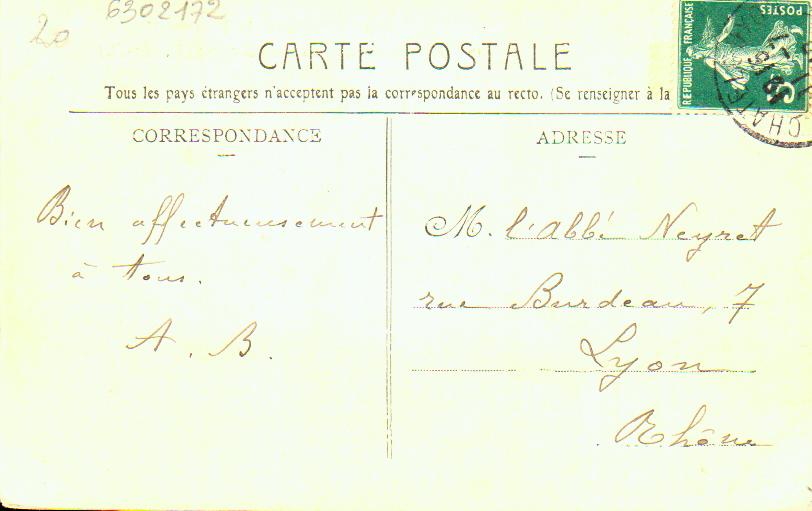 20
6302172
CARTE POSTALE
Tous les pays étrangers n'acceptent pas la correspondance au recto. (Se renseigner à la
REPUBLIQUE FRANÇAISE
POSTES
5c
CORRESPONDANCE
ADRESSE
Bien affectueusement
à tous.
A. B.
M. l'abbé Neyret
rue Burdeau, 7
Lyon
Rhône